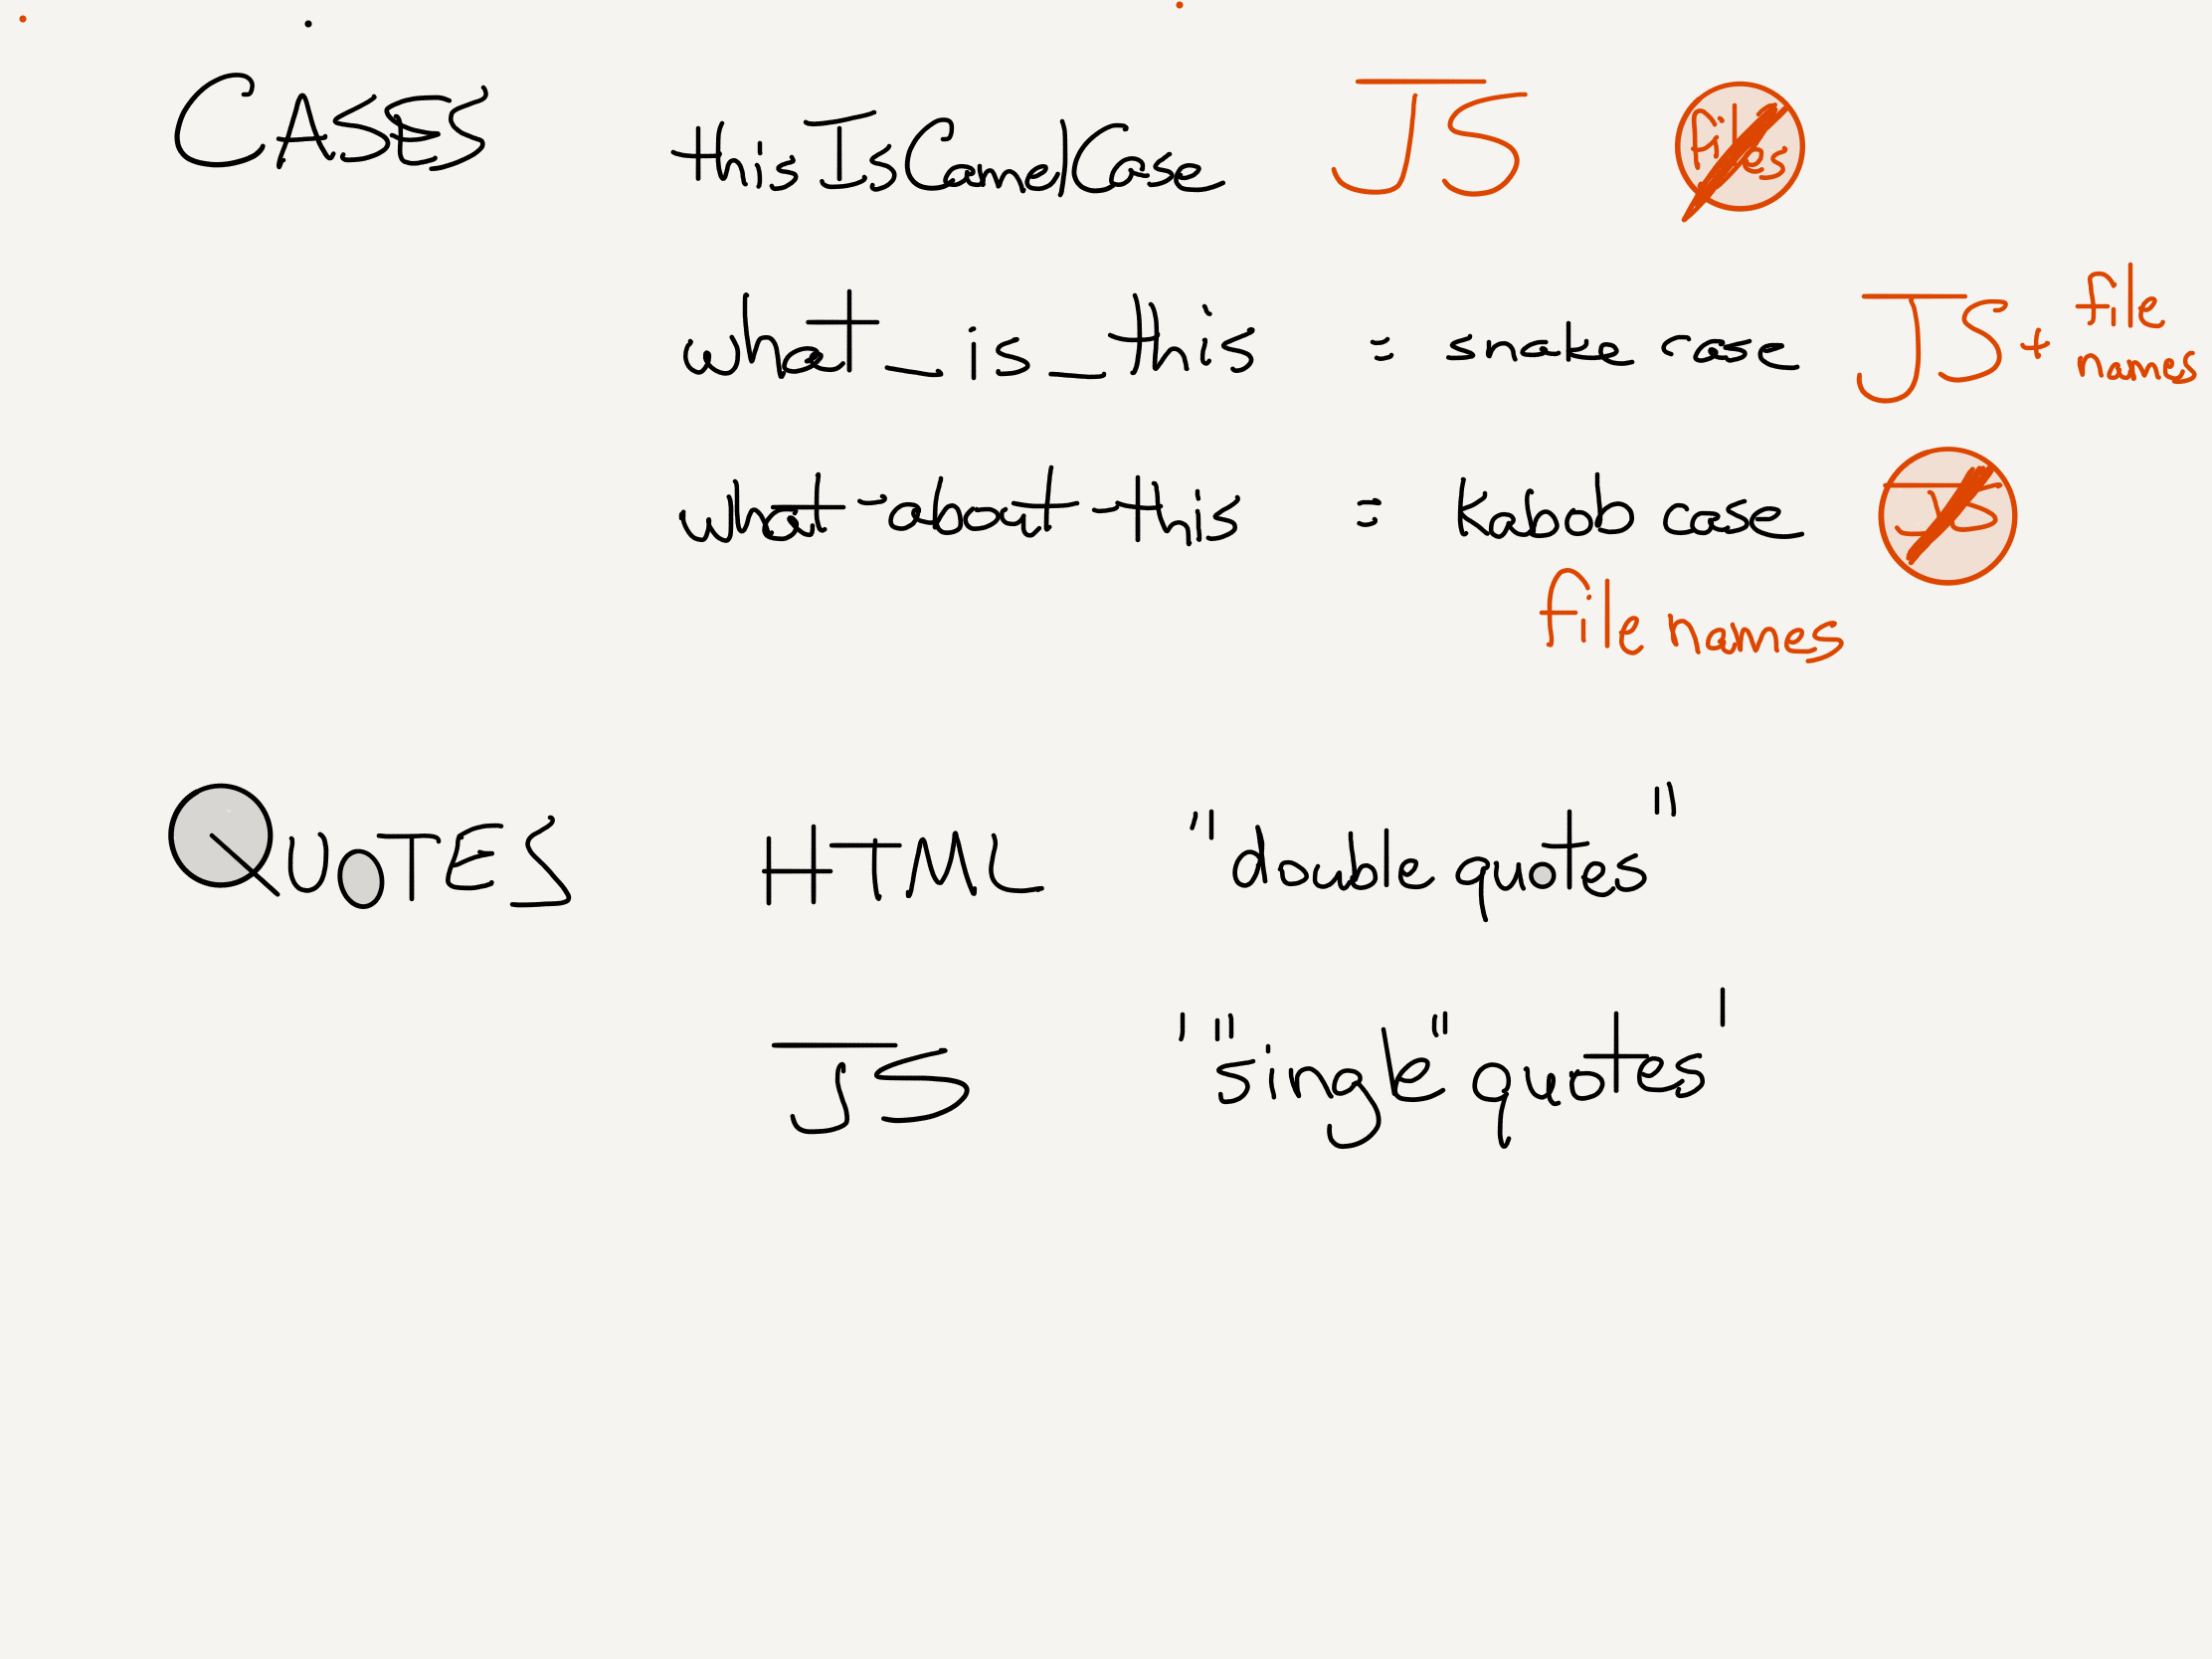 CASES thisIsCamelCase JS Files
what_is_this = snake case JS + file names
what-about-this = kabob case JS
file names
QUOTES HTML "double quotes"
JS '"single" quotes'